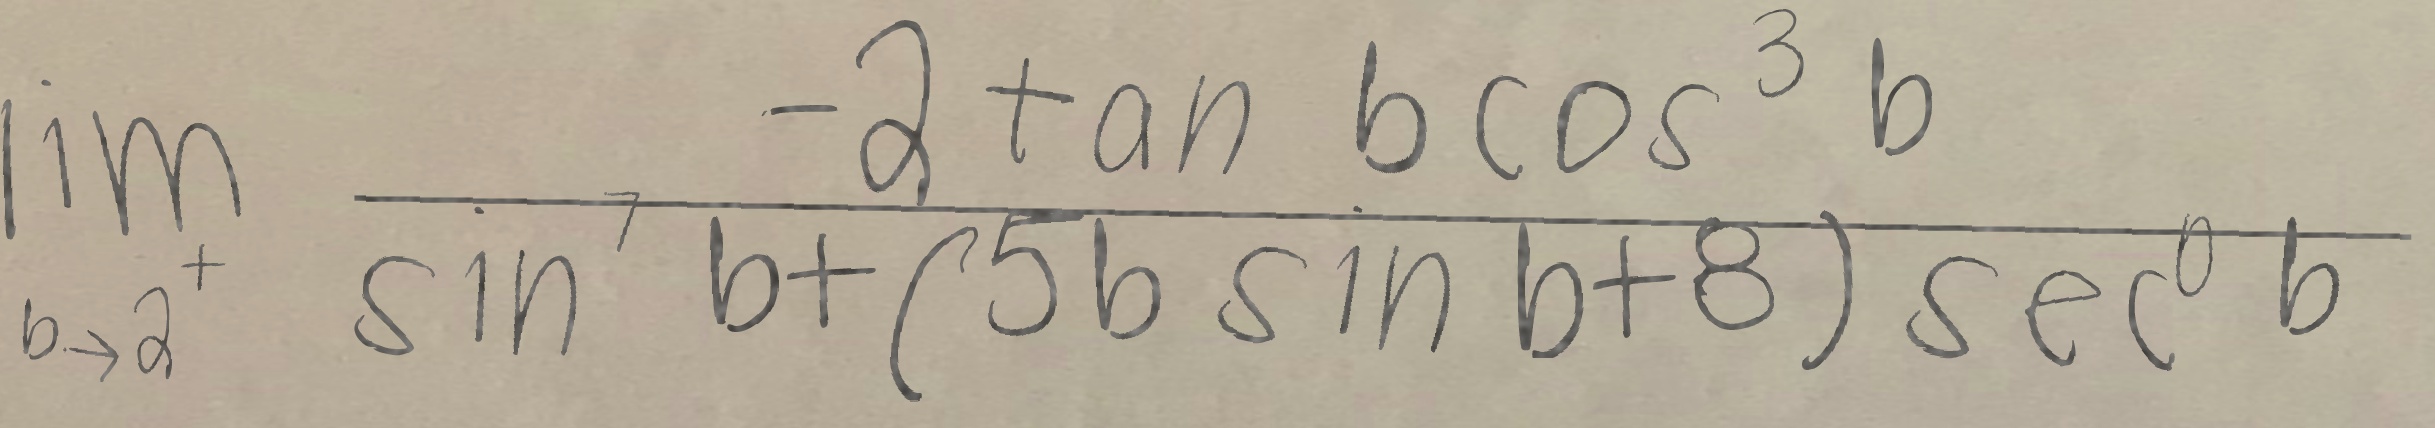 \lim_{b \to 2^+} \frac{-2 \tan b \cos^3 b}{\sin^7 b + (5b \sin b + 8) \sec^0 b}